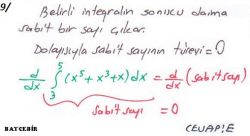 9/
Belirli integralin sonucu daima
sabit bir sayı çıkar.
Dolayısıyla sabit sayının türevi = 0
d/dx ∫₃⁵ (x⁵ + x³ + x) dx = d/dx (sabit sayı)
sabit sayı = 0
BAYCEBİR
CEVAP: E